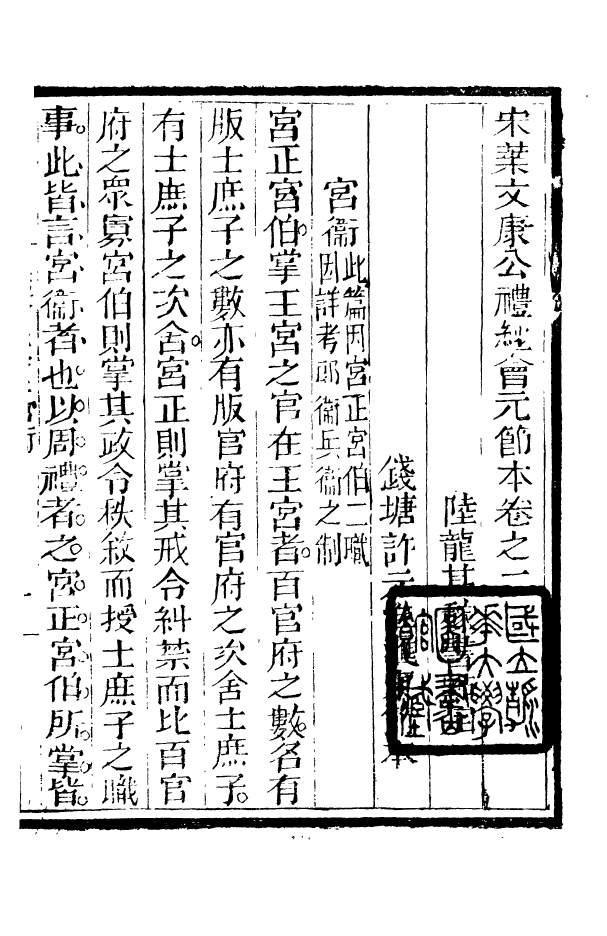 宋葉文康公禮經會元節本卷之二
陸龍其
錢塘許元
宮衞此篇因宮正宮伯二職因詳考郎衞兵衞之制
宮正宮伯掌王宮之官在王宮者百官府之數各有
版士庶子之數亦有版官府有官府之次舍士庶子
有士庶子之次舍宮正則掌其戒令糾禁而比百官
府之眾寡宮伯則掌其政令秩敘而授士庶子之職
事此皆言宮衞者也以周禮考之宮正宮伯所掌皆
國立清華大學圖書館藏